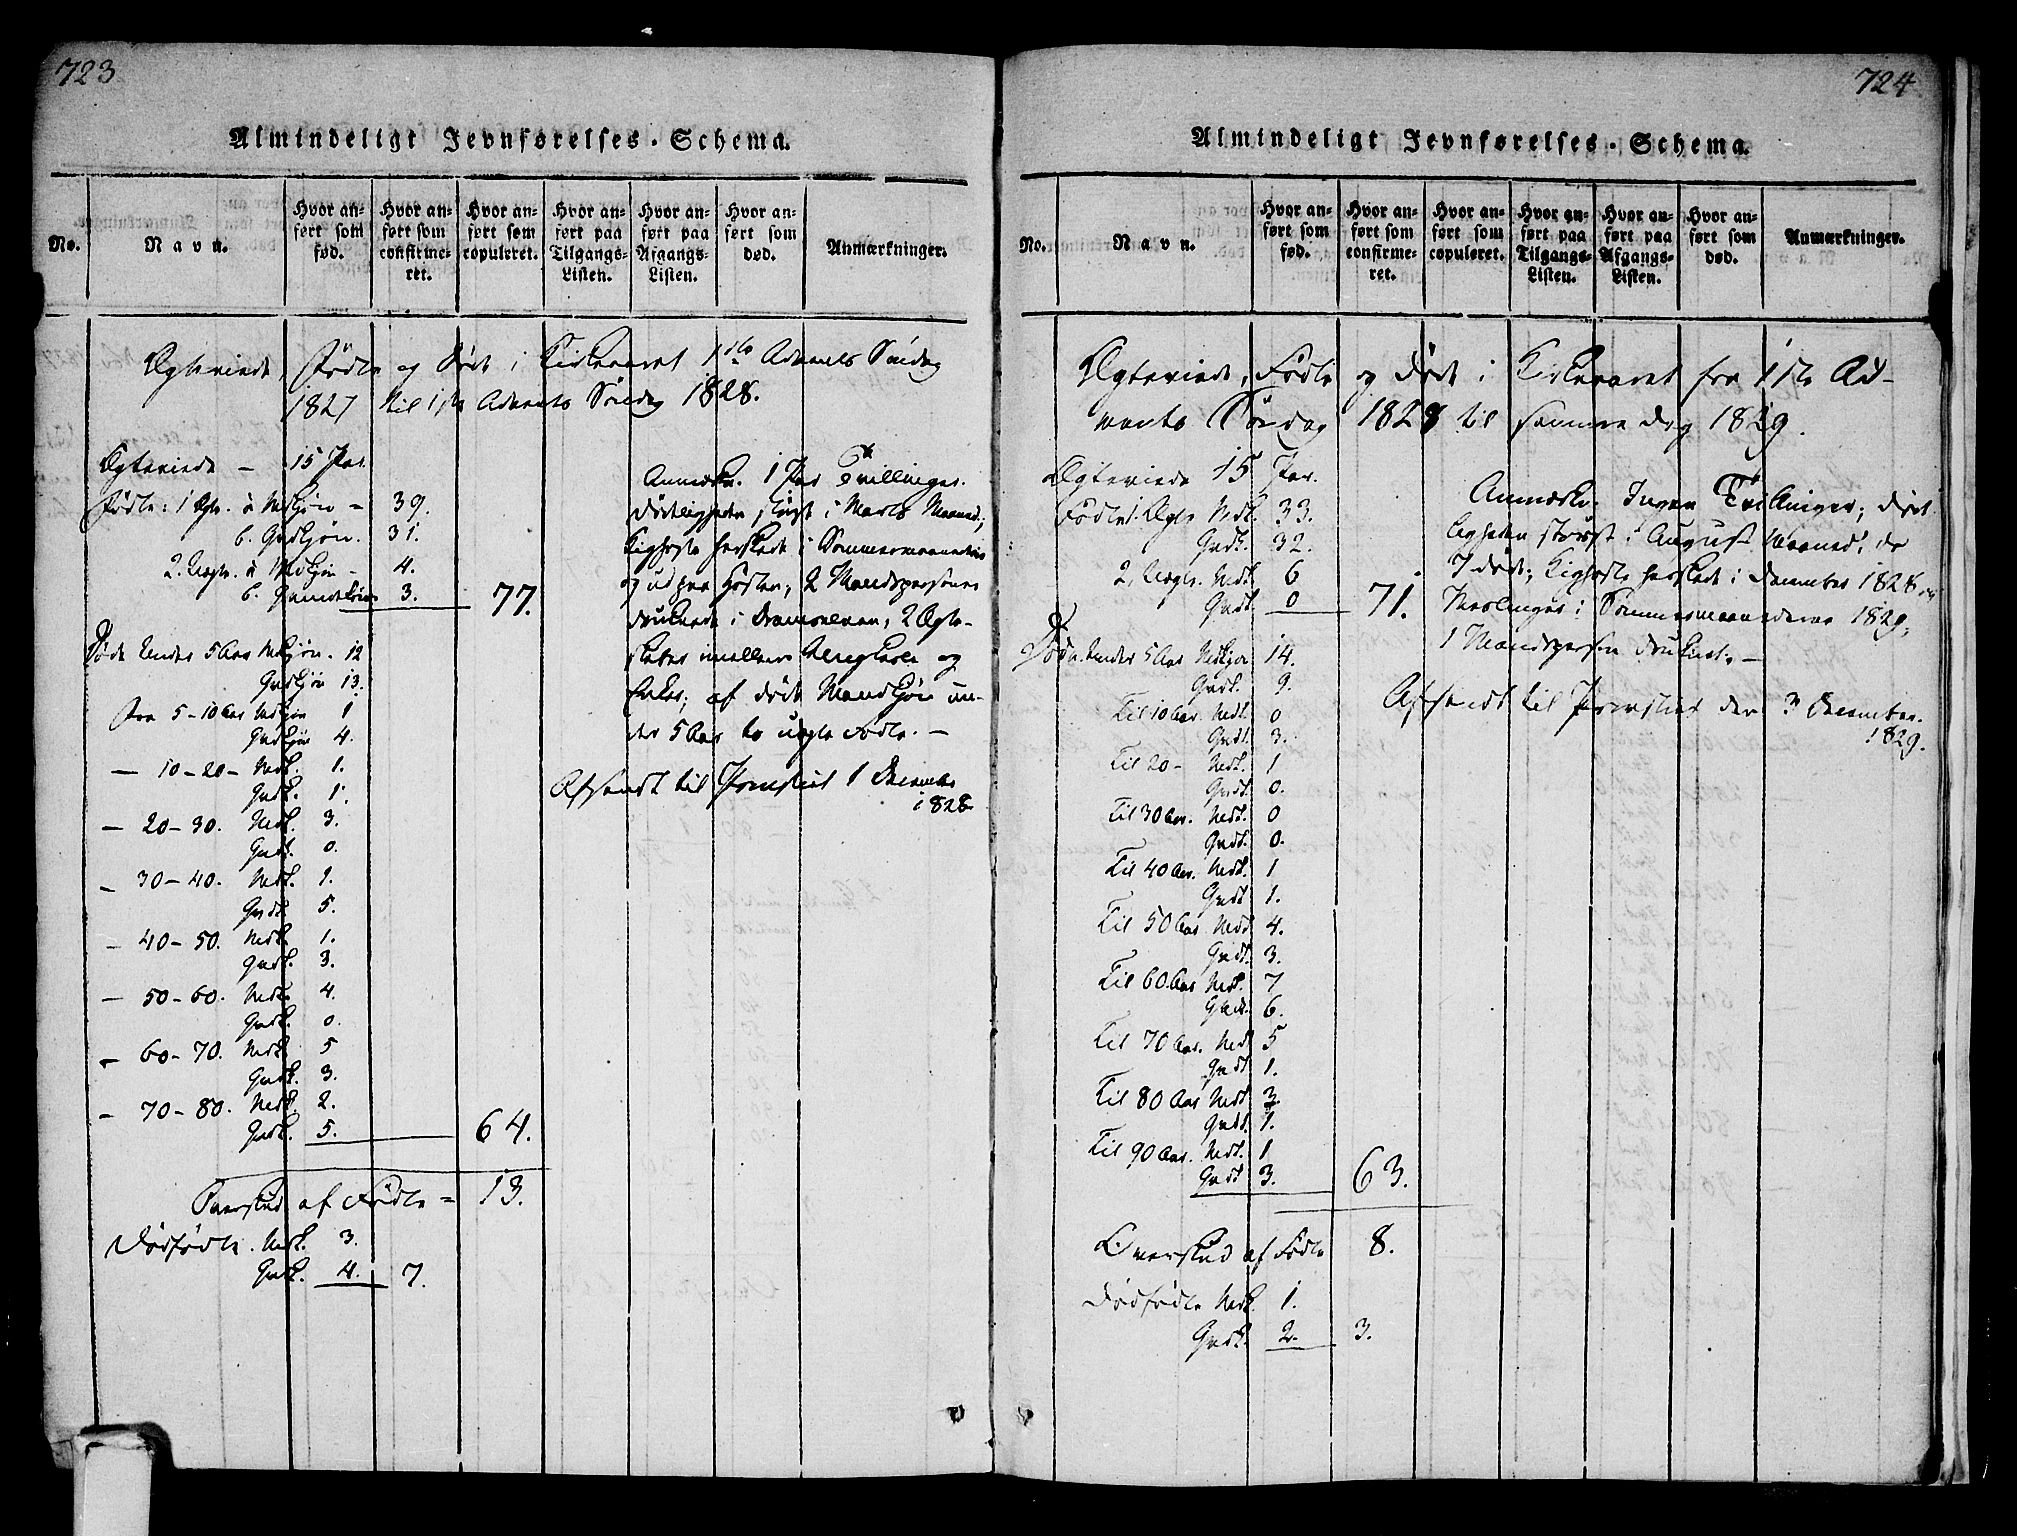 723
Almindeligt Jevnførelses-Schema.
No.
Navn.
Hvor an-
ført som
fød.
Hvor an-
ført som
confirme-
ret.
Hvor an-
ført som
copuleret.
Hvor an-
ført paa
Tilgangs-
Listen.
Hvor an-
ført paa
Afgangs-
Listen.
Hvor an-
ført som
død.
Anmærkninger.
Ægteviede, Födte og Döde i Kirkeaaret 1ste Advents Söndag
1827 til 1ste Advents Söndag 1828.
Ægteviede - 15 Par.
Födte: 1 Ægte. a Mdkjön - 39.
b. Qvdkjön. 31.
2. Uægte. a Mdkjön - 4.
b. Qvindekjön 3. 77.
Döde Under 5 Aar Mdkjön. 12
Qvdkjön 13.
Fra 5-10 Aar Mdkjön 1
Qvdkjön 4.
- 10-20- Mdk. 1.
Qvdk. 1.
- 20-30. Mdk. 3.
Qvdk. 0.
- 30-40. Mdk. 1.
Qvdk. 5.
- 40-50. Mdk. 1.
Qvdk. 3.
- 50-60. Mdk. 4.
Qvdk. 0.
- 60-70. Mdk. 5
Qvdk. 3.
- 70-80. Mdk. 2.
Qvdk. 5. 64.
Overskud af Födte = 13.
Dödfödte. Mdk. 3.
Qvdk. 4. 7.
Anmærkn. 1 Par Tvillinger.
Dödeligheden störst i Marts Maaned;
Kighoste herskede i Sommermaanederne
og ud paa Hösten; 2 Mandspersoner
druknede i Dramselven; 2 Ægte-
skaber imellem Ungkarle og
Enker; af döde Mandkjön un-
der 5 Aar to uægte Födte. -
Afsendt til Provstiet 1 December
1828
724
Almindeligt Jevnførelses-Schema.
No.
Navn.
Hvor an-
ført som
fød.
Hvor an-
ført som
confirme-
ret.
Hvor an-
ført som
copuleret.
Hvor an-
ført paa
Tilgangs-
Listen.
Hvor an-
ført paa
Afgangs-
Listen.
Hvor an-
ført som
død.
Anmærkninger.
Ægteviede, Födte og Döde i Kirkeaaret fra 1ste Ad-
vents Söndag 1828 til samme Dag 1829.
Ægteviede 15 Par.
Födte 1. Ægte Mdk. 33.
Qvdk. 32.
2. Uægte. Mdk. 6
Qvdk. 0 71.
Döde. Under 5 Aar Mdkjön 14.
Qvdk. 9.
Til 10 Aar. Mdk. 0
Qvdk. 3.
Til 20- Mdk. 1
Qvdk. 0.
Til 30 Aar. Mdk. 0
Qvdk. 0.
Til 40 Aar. Mdk. 1
Qvdk 1.
Til 50 Aar Mdk 4.
Qvdk. 3.
Til 60 Aar Mdk. 7
Qvdk. 6.
Til 70 Aar. Mdk 5
Qvdk 1.
Til 80 Aar Mdk 3.
Qvdk. 1.
Til 90 Aar. Mdk. 1
Qvdk 3. 63.
Overskud af Födte 8.
Dödfödte Mdk. 1.
Qvdk. 2. 3.
Anmærkn. Ingen Tvillinger; Döde-
ligheden störst i August Maaned, da
7 döde; Kighoste herskede i December 1828 og
Meslinger i Sommermaanederne 1829,
1 Mandsperson druknede. -
Afsendt til Provstiet den 3 December.
1829.